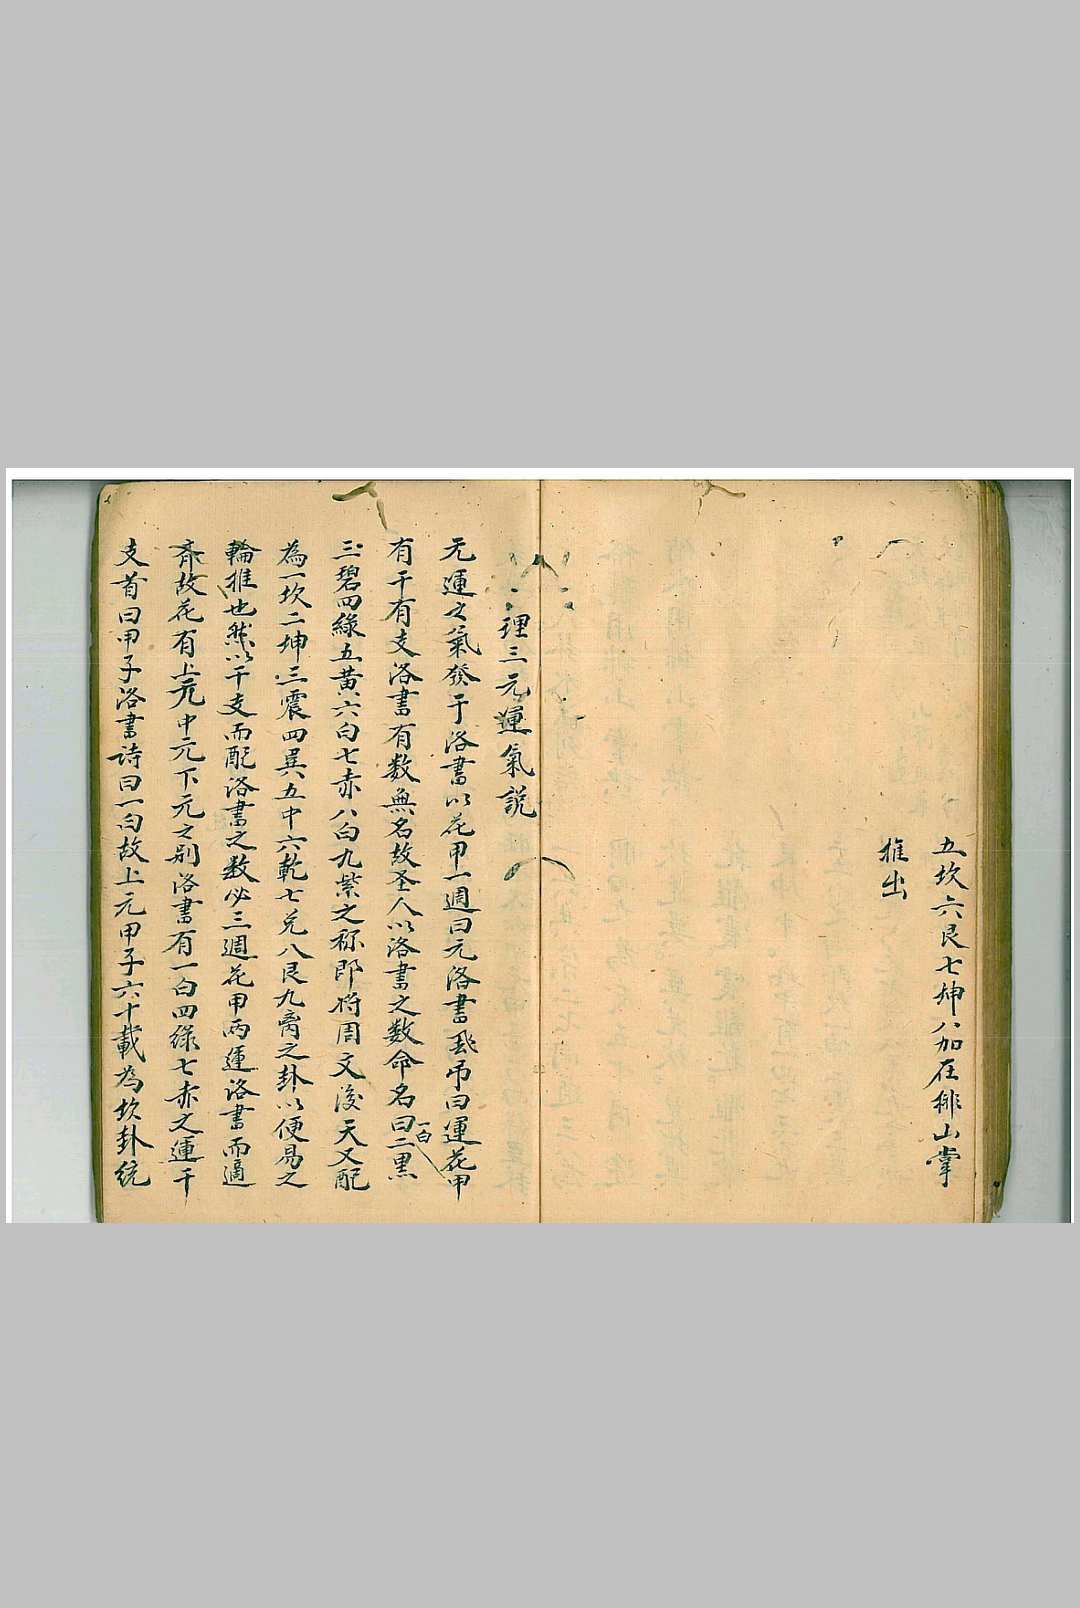 五坎六艮七坤八加在排山掌
推出
理三元運氣說
元運之氣發于洛書以花甲一週曰元洛書飛吊曰運花甲
有干有支洛書有数無名故圣人以洛書之数命名曰一白二黑
三碧四綠五黄六白七赤八白九紫之称即将周文後天又配
為一坎二坤三震四巽五中六乾七兌八艮九离之卦以便易之
輪推也然以干支而配洛書之数必三週花甲両運洛書而適
齐故花有上元中元下元之别洛書有一白四绿七赤之運干
支首曰甲子洛書詩曰一白故上元甲子六十載為坎卦統